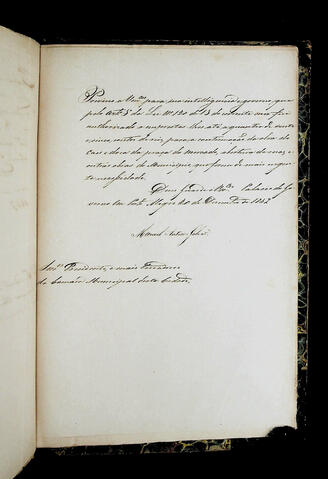 Previno a V.mces para sua intelligencia e governo, que
pelo Art. 5 da Lei N.º 120 de 13 do corrente
authorisado a emprestar lhes até a quantia de
contos de reis, para a continuação da obra do
caes e obra da praça do mercado, factura de ruas, e
outras obras do Municipio que forem de mais urgen-
te necessidade.
Deos Guarde a V.mces Palacio do Go-
verno em Porto Alegre de Dezembro de
Manoel
Snr.es Presidente, e mais Vereadores
da Camara Municipal desta Cidade.